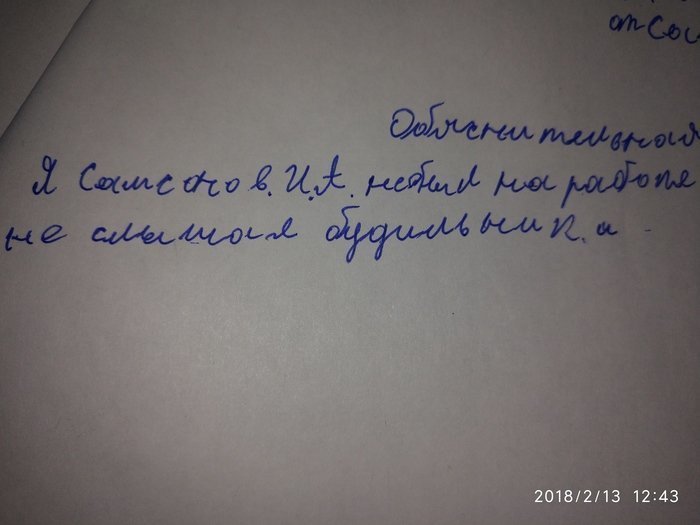 от Сос
Обяснительная
Я Самсонов. И.А. небыл на работе
не слышал будильник.а
2018/2/13 12:43